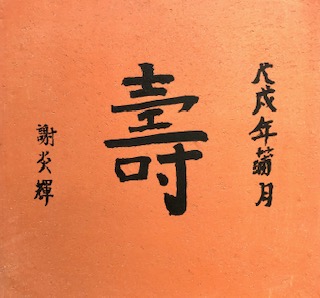 戊戌年蒲月
壽
謝炎輝